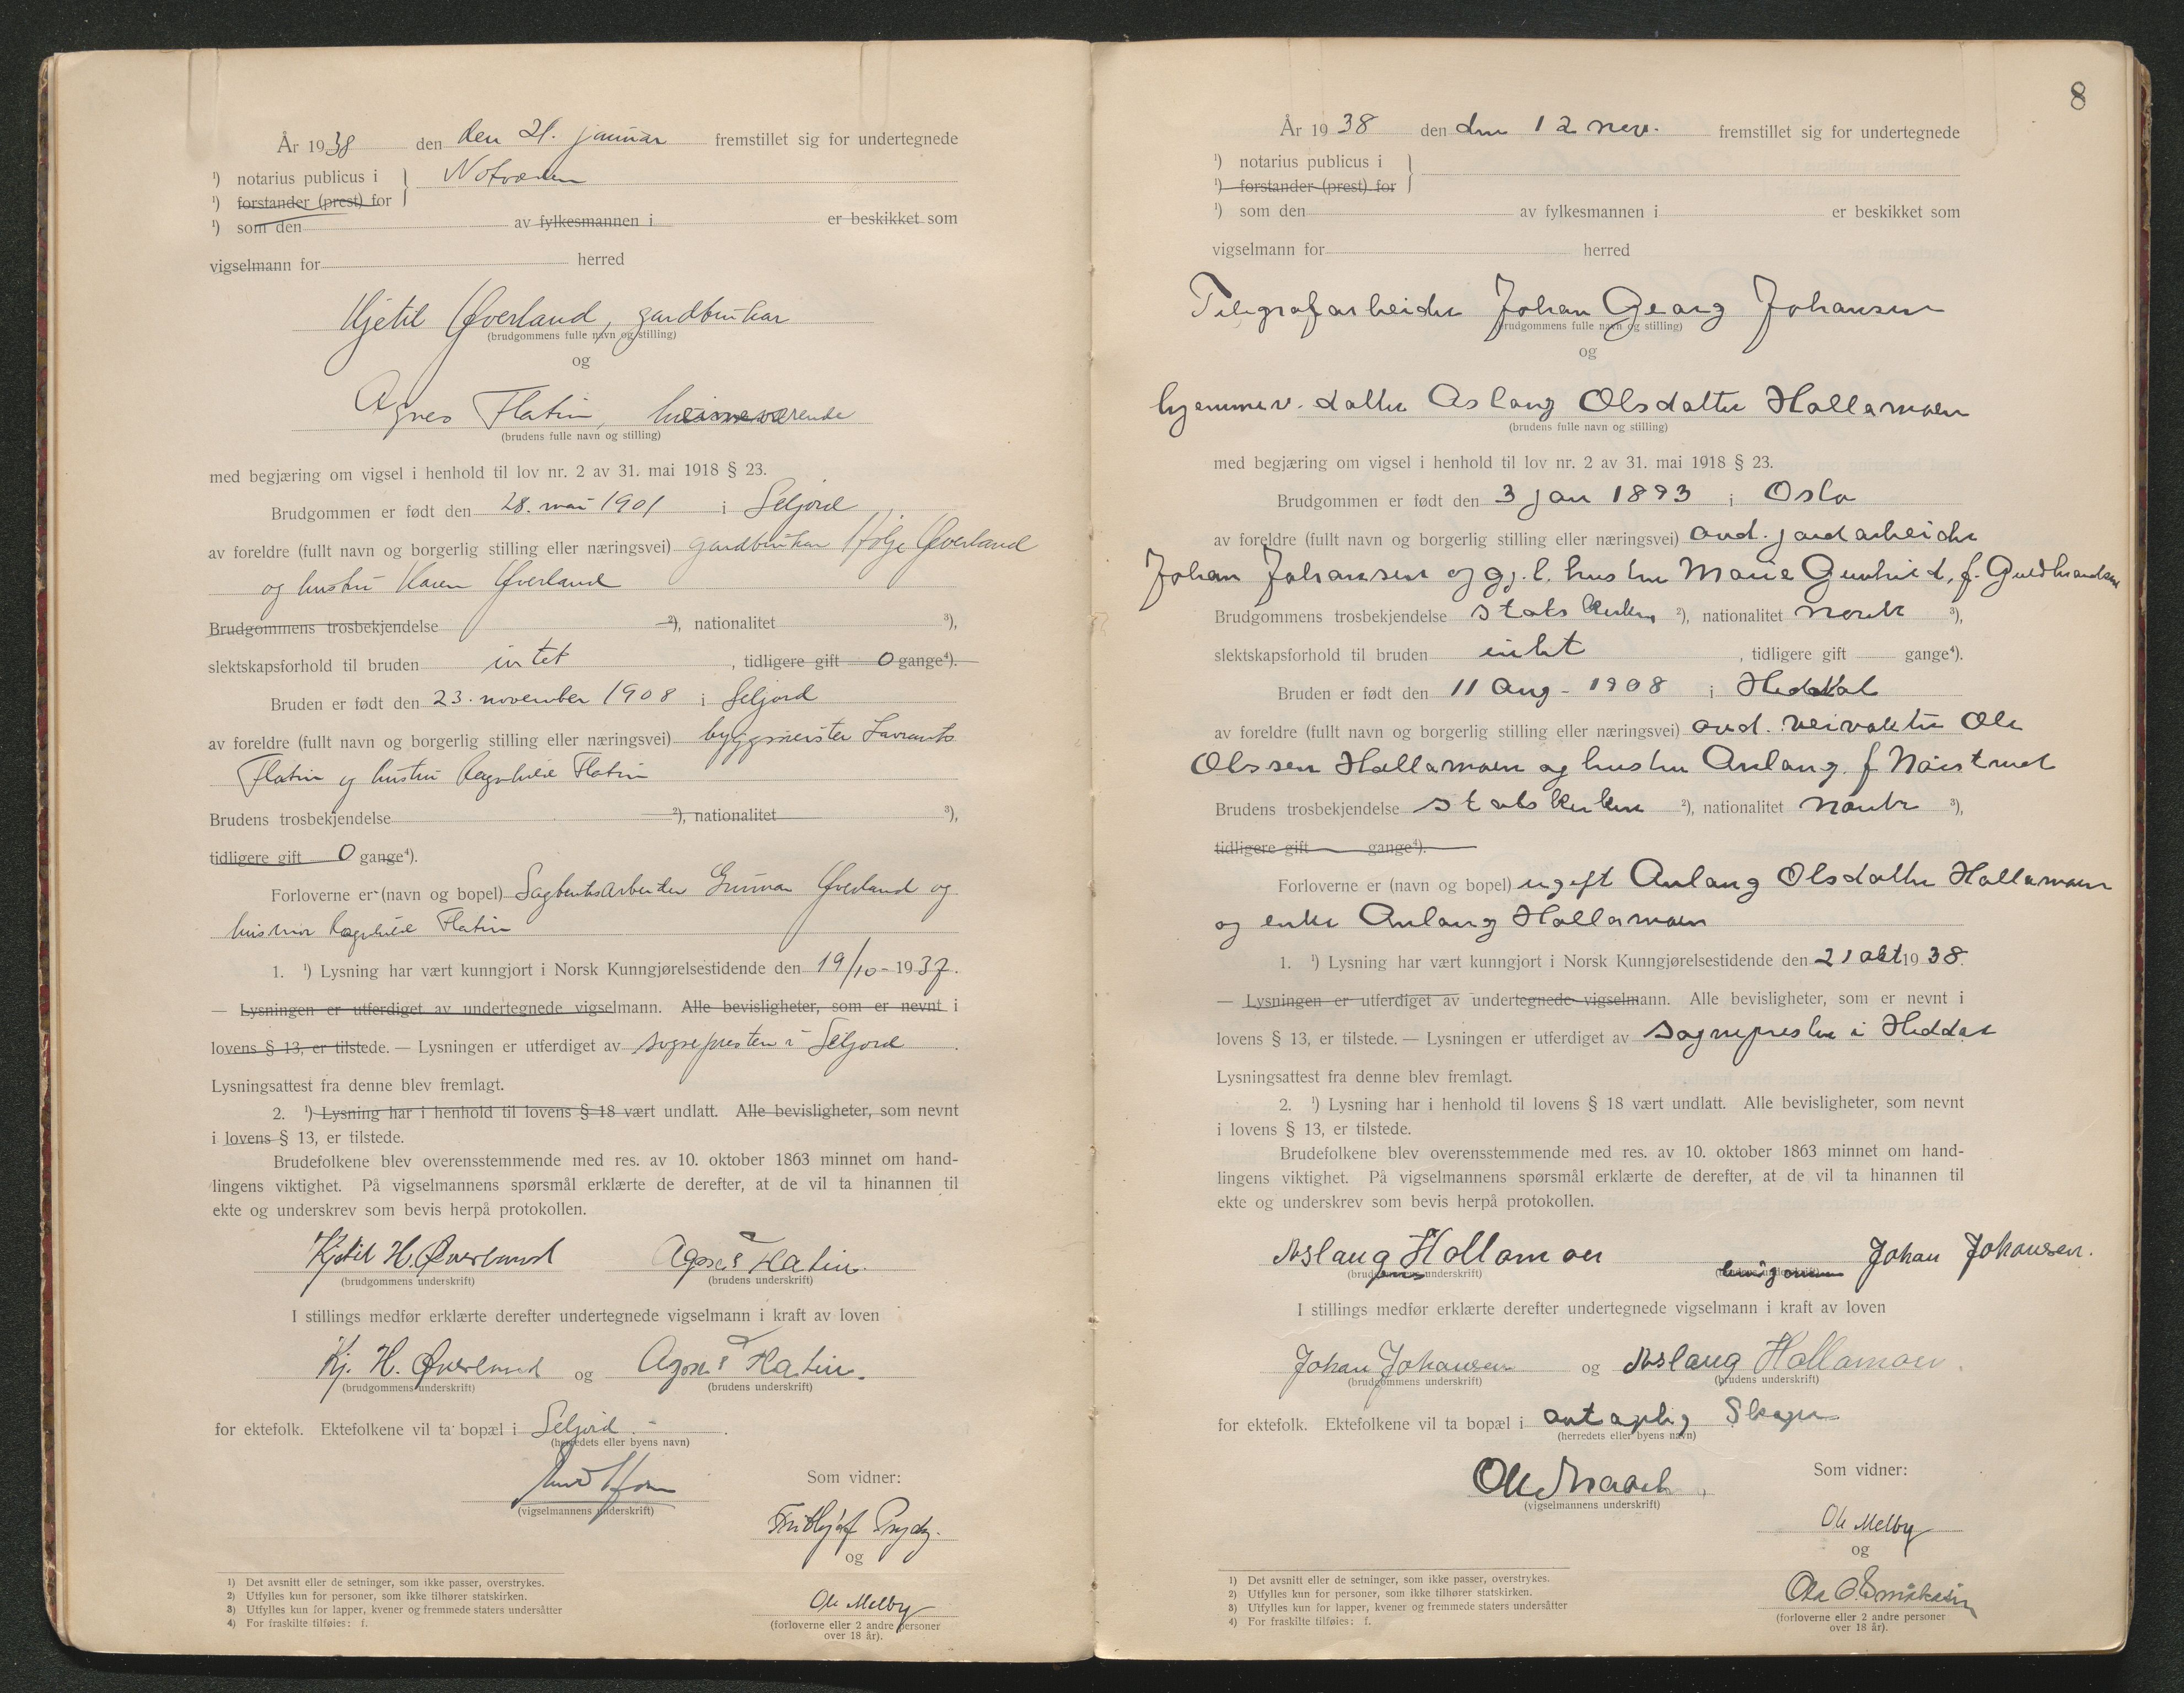 År 1938 den den 21. januar fremstillet sig for undertegnede
¹) notarius publicus i Notodden
¹) forstander (prest) for
¹) som den av fylkesmannen i er beskikket som
vigselmann for herred
Kjetil Øverland, gardbrukar
(brudgommens fulle navn og stilling)
og
Agnes Flatin, heimeværende
(brudens fulle navn og stilling)
med begjæring om vigsel i henhold til lov nr. 2 av 31. mai 1918 § 23.
Brudgommen er født den 28. mai 1901 i Seljord
av foreldre (fullt navn og borgerlig stilling eller næringsvei) gardbrukar Hølje Øverland
og hustru Karen Øverland
Brudgommens trosbekjendelse ²), nationalitet ³),
slektskapsforhold til bruden intet , tidligere gift 0 gange⁴).
Bruden er født den 23. november 1908 i Seljord
av foreldre (fullt navn og borgerlig stilling eller næringsvei) byggmeister Lavrants
Flatin og hustru Ragnhild Flatin
Brudens trosbekjendelse ²), nationalitet ³),
tidligere gift 0 gange⁴).
Forloverne er (navn og bopel) Sagbruksarbeider Gunnar Øverland og
husmor Ragnhild Flatin
1. ¹) Lysning har vært kunngjort i Norsk Kunngjørelsestidende den 19/10-1937.
— Lysningen er utferdiget av undertegnede vigselmann. Alle bevisligheter, som er nevnt i
lovens § 13, er tilstede. — Lysningen er utferdiget av sognepresten i Seljord .
Lysningsattest fra denne blev fremlagt.
2. ¹) Lysning har i henhold til lovens § 18 vært undlatt. Alle bevisligheter, som nevnt
i lovens § 13, er tilstede.
Brudefolkene blev overensstemmende med res. av 10. oktober 1863 minnet om hand-
lingens viktighet. På vigselmannens spørsmål erklærte de derefter, at de vil ta hinannen til
ekte og underskrev som bevis herpå protokollen.
Kjetil H. Øverland Agnes Flatin.
(brudgommens underskrift) (brudens underskrift)
I stillings medfør erklærte derefter undertegnede vigselmann i kraft av loven
Kj. H. Øverland og Agnes Flatin.
(brudgommens underskrift) (brudens underskrift)
for ektefolk. Ektefolkene vil ta bopæl i Seljord .
(herredets eller byens navn)
(vigselmannens underskrift)
Som vidner:
Frithjof
og
Ole Melby
(forloverne eller 2 andre personer
over 18 år).
1) Det avsnitt eller de setninger, som ikke passer, overstrykes.
2) Utfylles kun for personer, som ikke tilhører statskirken.
3) Utfylles kun for lapper, kvener og fremmede staters undersåtter
4) For fraskilte tilføies: f.
8
År 1938 den den 12 nov. fremstillet sig for undertegnede
¹) notarius publicus i
¹) forstander (prest) for
¹) som den av fylkesmannen i er beskikket som
vigselmann for herred
Telegrafarbeider Johan Georg Johansen
(brudgommens fulle navn og stilling)
og
hjemmev. datter Aslaug Olsdatter Hollamoen
(brudens fulle navn og stilling)
med begjæring om vigsel i henhold til lov nr. 2 av 31. mai 1918 § 23.
Brudgommen er født den 3 jan 1893 i Oslo
av foreldre (fullt navn og borgerlig stilling eller næringsvei) avd. jordarbeider
Johan Johansen og gj. l. hustru Marie Gunhild, f. Guldbrandsen
Brudgommens trosbekjendelse statskirken ²), nationalitet norsk ³),
slektskapsforhold til bruden intet , tidligere gift gange⁴).
Bruden er født den 11 Aug - 1908 i Heddal
av foreldre (fullt navn og borgerlig stilling eller næringsvei) avd. veivokter Ole
Olssen Hollamoen og hustru Aslaug f.
Brudens trosbekjendelse statskirken ²), nationalitet norsk ³),
tidligere gift gange⁴).
Forloverne er (navn og bopel) ugift Aslaug Olsdatter Hollamoen
og enke Aslaug Hollamoen
1. ¹) Lysning har vært kunngjort i Norsk Kunngjørelsestidende den 21 okt 1938.
— Lysningen er utferdiget av undertegnede vigselmann. Alle bevisligheter, som er nevnt i
lovens § 13, er tilstede. — Lysningen er utferdiget av sognepresten i Heddal
Lysningsattest fra denne blev fremlagt.
2. ¹) Lysning har i henhold til lovens § 18 vært undlatt. Alle bevisligheter, som nevnt
i lovens § 13, er tilstede.
Brudefolkene blev overensstemmende med res. av 10. oktober 1863 minnet om hand-
lingens viktighet. På vigselmannens spørsmål erklærte de derefter, at de vil ta hinannen til
ekte og underskrev som bevis herpå protokollen.
Aslaug Hollamoen Johan Johansen.
(brudgommens underskrift) brudgommens
I stillings medfør erklærte derefter undertegnede vigselmann i kraft av loven
Johan Johansen og Aslaug Hollamoen.
(brudgommens underskrift) (brudens underskrift)
for ektefolk. Ektefolkene vil ta bopæl i antagelig
(herredets eller byens navn)
Ole
(vigselmannens underskrift)
Som vidner:
Ole Melby
og
Ola
(forloverne eller 2 andre personer
over 18 år).
1) Det avsnitt eller de setninger, som ikke passer, overstrykes.
2) Utfylles kun for personer, som ikke tilhører statskirken.
3) Utfylles kun for lapper, kvener og fremmede staters undersåtter
4) For fraskilte tilføies: f.